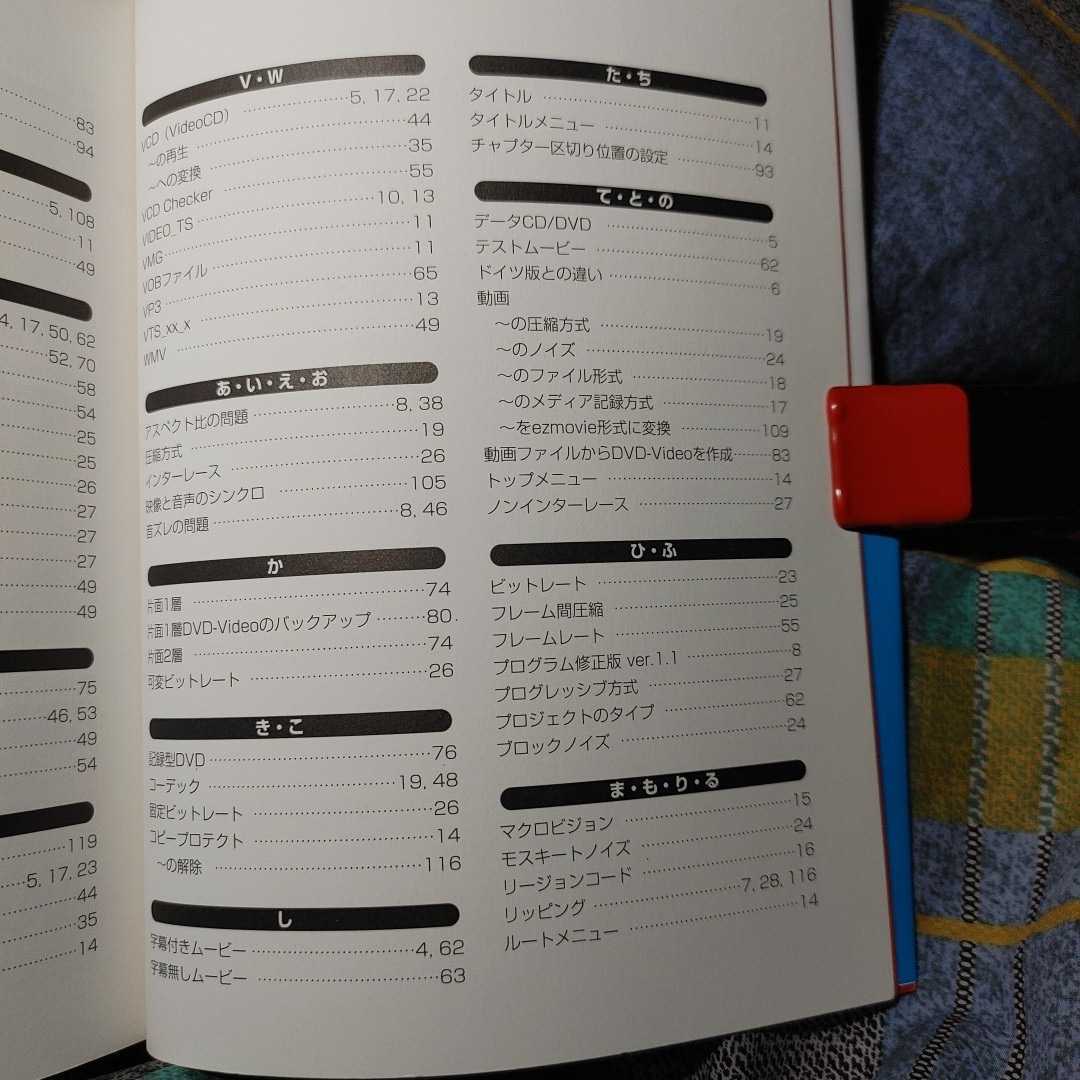 83
94
5, 108
11
49
4, 17, 50, 62
52, 70
58
54
25
25
26
27
27
27
49
49
75
46, 53
49
54
119
5, 17, 23
44
35
14
V・W
VCD（VideoCD）……5, 17, 22
〜の再生……44
〜への変換……35
VCD Checker……55
VIDEO_TS……10, 13
VMG……11
VOBファイル……11
VP3……65
VTS_xx_x……13
WMV……49
あ・い・え・お
アスペクト比の問題……8, 38
圧縮方式……19
インターレース……26
映像と音声のシンクロ……105
音ズレの問題……8, 46
か
片面1層……74
片面1層DVD-Videoのバックアップ……80
片面2層……74
可変ビットレート……26
き・こ
記録型DVD……76
コーデック……19, 48
固定ビットレート……26
コピープロテクト……14
〜の解除……116
し
字幕付きムービー……4, 62
字幕無しムービー……63
た・ち
タイトル……11
タイトルメニュー……14
チャプター区切り位置の設定……93
て・と・の
データCD/DVD……5
テストムービー……62
ドイツ版との違い……6
動画
〜の圧縮方式……19
〜のノイズ……24
〜のファイル形式……18
〜のメディア記録方式……17
〜をezmovie形式に変換……109
動画ファイルからDVD-Videoを作成……83
トップメニュー……14
ノンインターレース……27
ひ・ふ
ビットレート……23
フレーム間圧縮……25
フレームレート……55
プログラム修正版 ver.1.1……8
プログレッシブ方式……27
プロジェクトのタイプ……62
ブロックノイズ……24
ま・も・り・る
マクロビジョン……15
モスキートノイズ……24
リージョンコード……16
リッピング……7, 28, 116
ルートメニュー……14